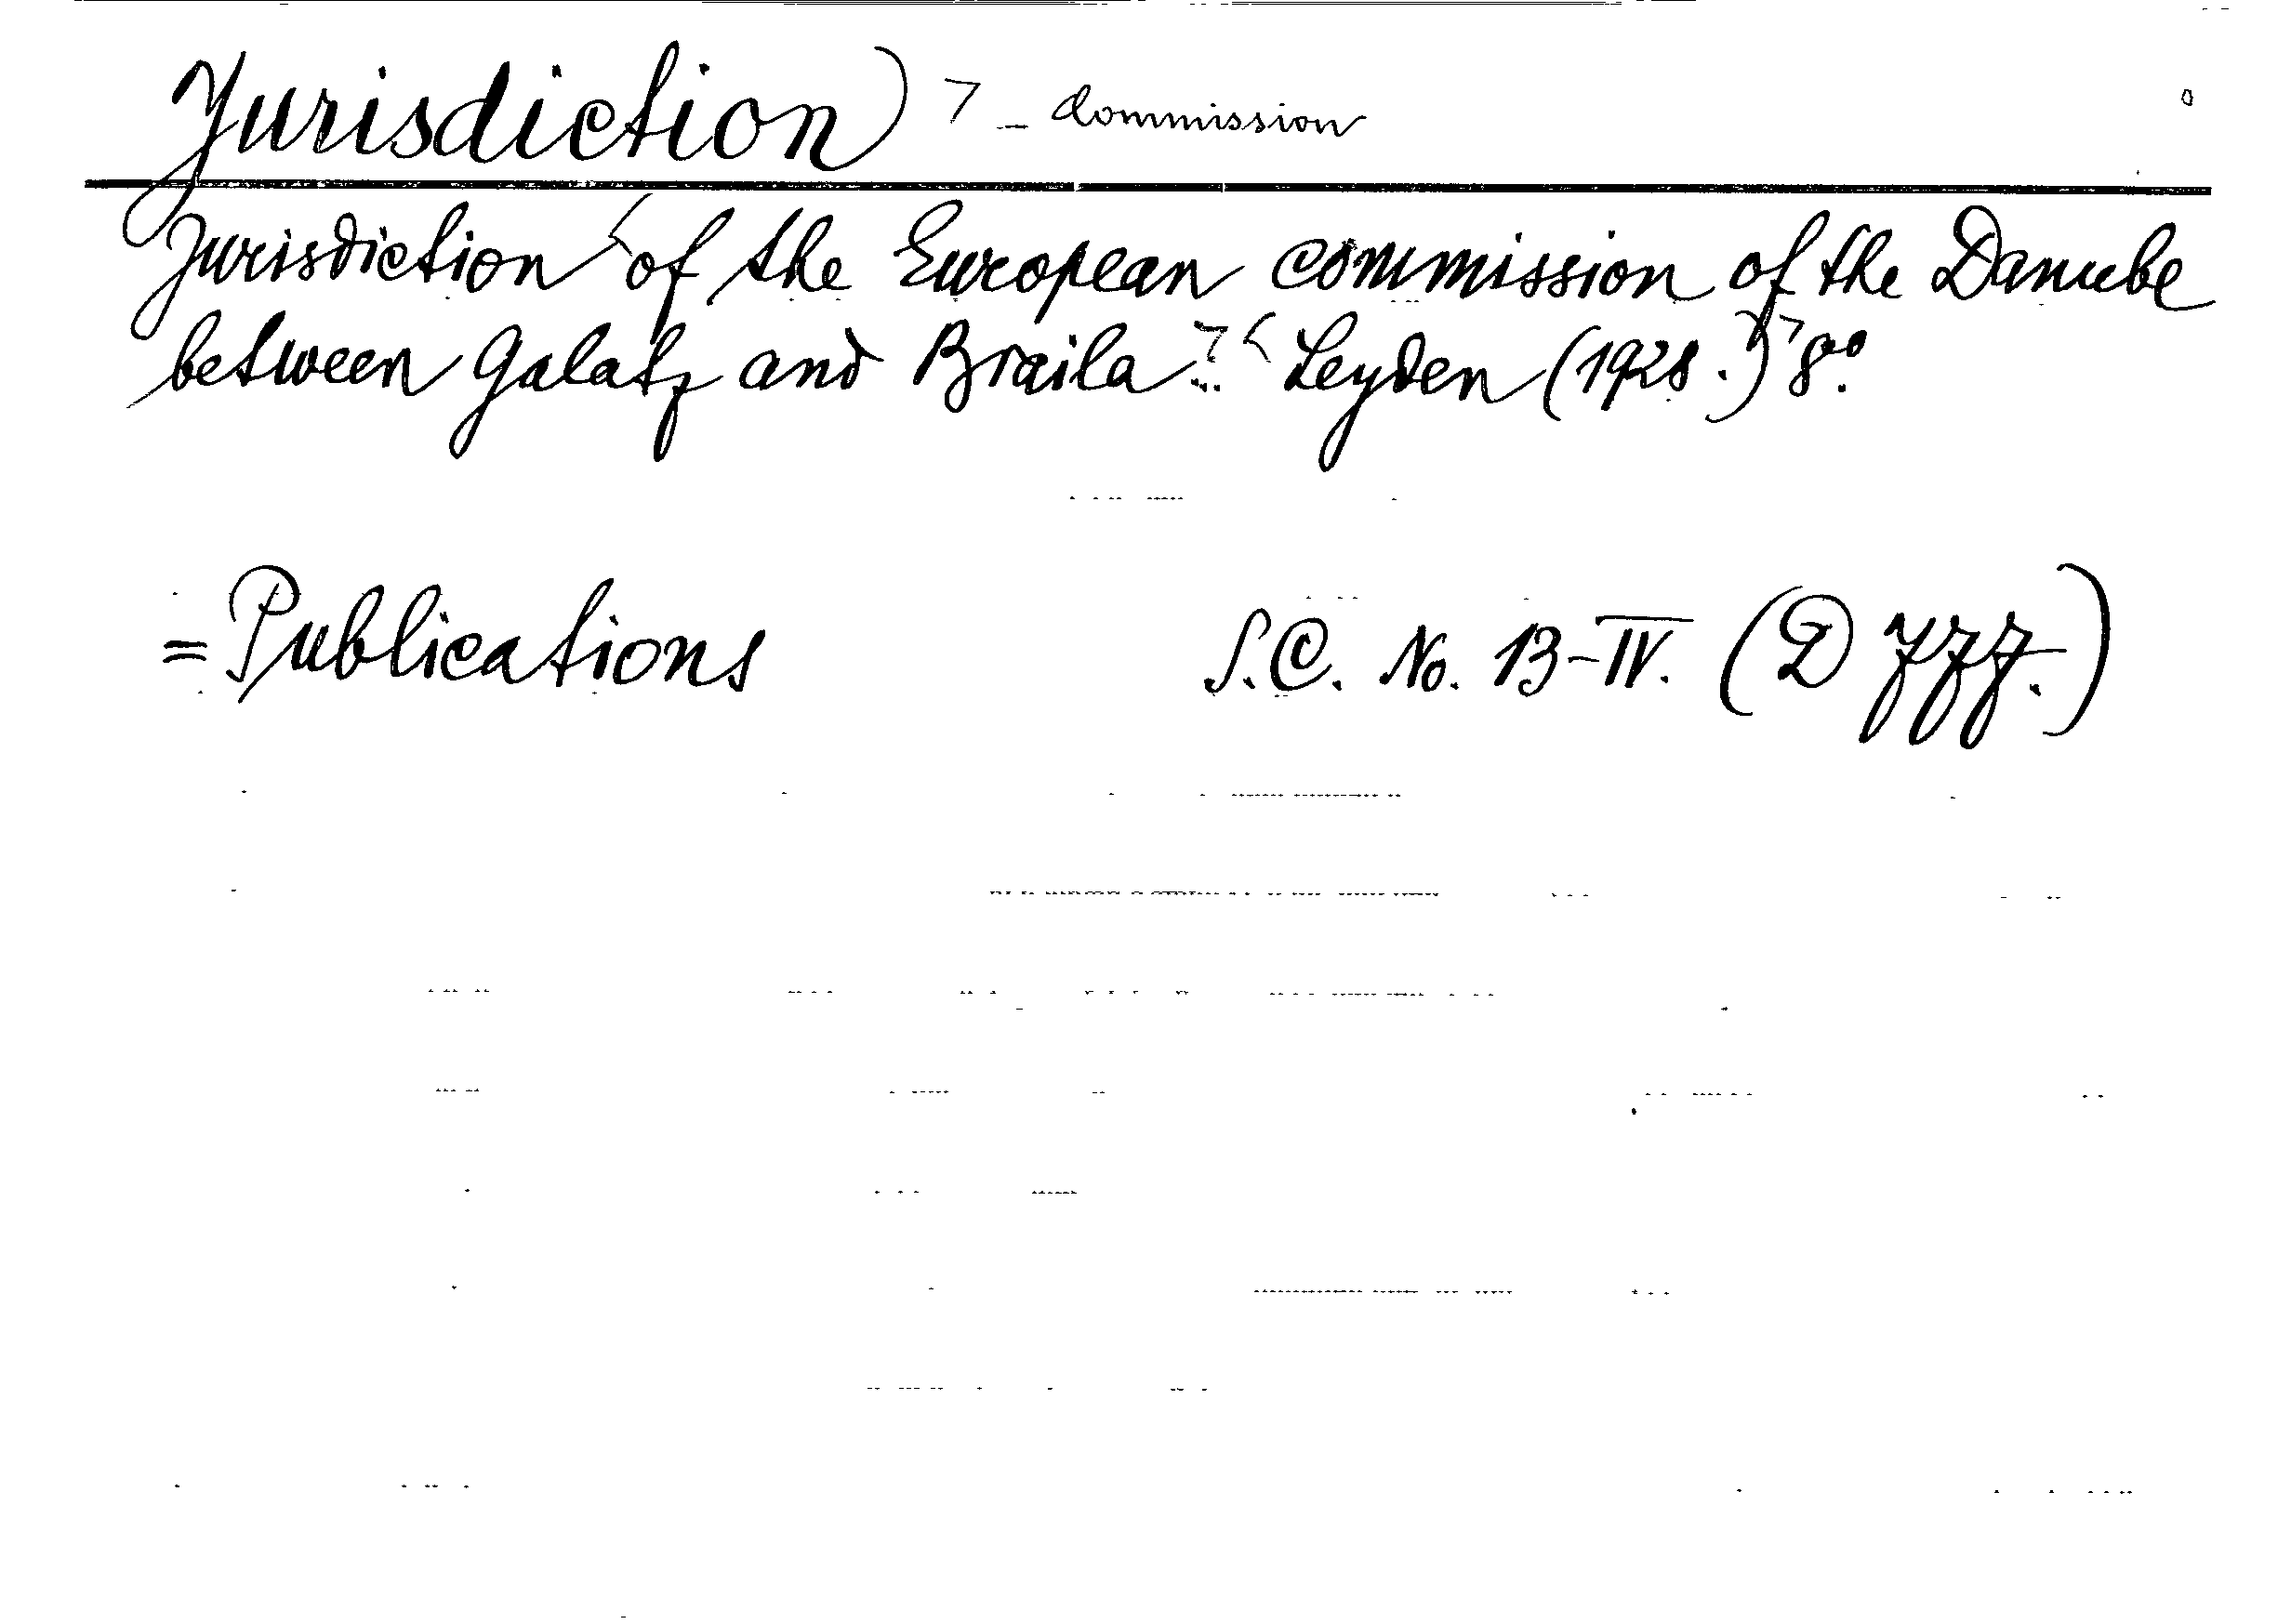 Jurisdiction - Commission
Jurisdiction of the European commission of the Danube
between Galatz and Braila. Leyden (1928.) 8°.
= Publications S.C. No. 13-IV. (D